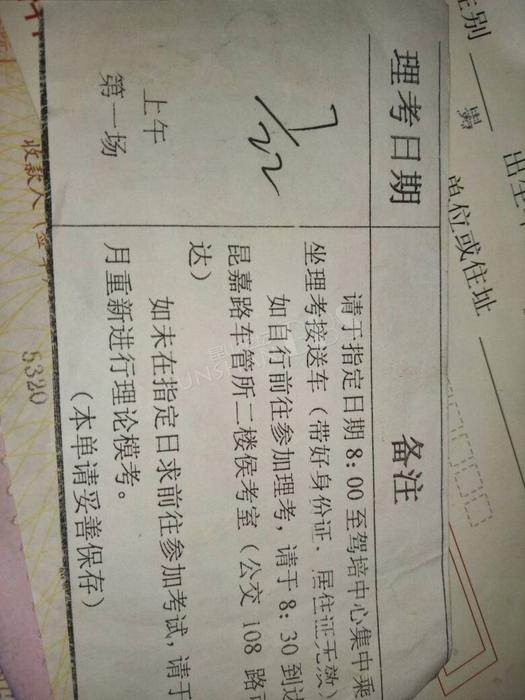 理考日期
备注
7/22
上午
第一场
请于指定日期 8:00 至驾培中心集中乘
坐理考接送车（带好身份证，居住证无效）
如自行前往参加理考，请于 8:30 到达
昆嘉路车管所二楼侯考室（公交 108 路
达）
如未在指定日求前往参加考试，请于
月重新进行理论模考。
（本单请妥善保存）
性别
男
单位或住址
收款人
5320